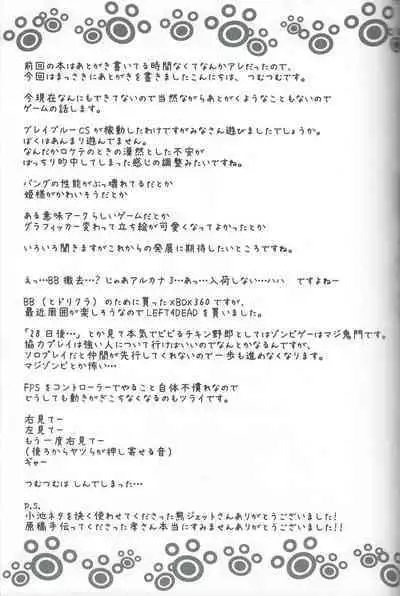 前回の本はあとがき書いてる時間なくてなんかアレだったので、
今回はまっさきにあとがきを書きましたこんにちは、つむつむです。
今現在なんにもできてないので当然ながらあとがくようなこともないので
ゲームの話します。
ブレイブルーCSが稼動したわけですがみなさん遊びましたでしょうか。
ぼくはあんまり遊んでません。
なんだかロケテのときの漠然とした不安が
ばっちり的中してしまった感じの調整みたいですね。
バングの性能がぶっ壊れてるだとか
姫様がかわいそうだとか
ある意味アークらしいゲームだとか
グラフィッカー変わって立ち絵が可愛くなってよかったとか
いろいろ聞きますがこれからの発展に期待したいところですね。
えっ…BB 撤去…？じゃあアルカナ3…あっ…入荷しない…ハハ　ですよねー
BB（とドリクラ）のために買ったXBOX360ですが、
最近周囲が楽しそうなのでLEFT4DEADを買いました。
「28日後…」とか見て本気でビビるチキン野郎としてはゾンビゲーはマジ鬼門です。
協力プレイは強い人について行けばいいのでなんとかなるんですが、
ソロプレイだと仲間が先行してくれないので一歩も進めなくなります。
マジゾンビとか怖い…
FPSをコントローラーでやること自体不慣れなので
どうしても動きがぎこちなくなるのもツライです。
右見てー
左見てー
もう一度右見てー
（後ろからヤツらが押し寄せる音）
ギャー
つむつむは しんでしまった…
p.s.
小池ネタを快く使わせてくださった熊ジェットさんありがとうございました！
原稿手伝ってくださった孝さん本当にすみませんありがとうございました！！